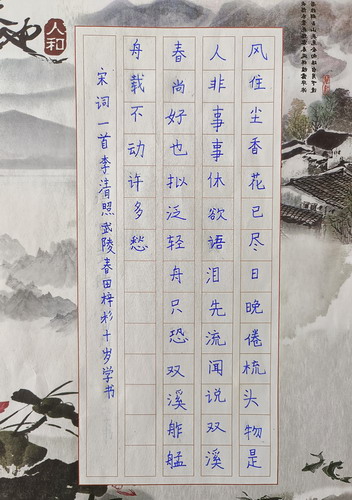 风住尘香花已尽日晚倦梳头物是
人非事事休欲语泪先流闻说双溪
春尚好也拟泛轻舟只恐双溪舴艋
舟载不动许多愁
宋词一首李清照武陵春田梓杉十岁学书
人和